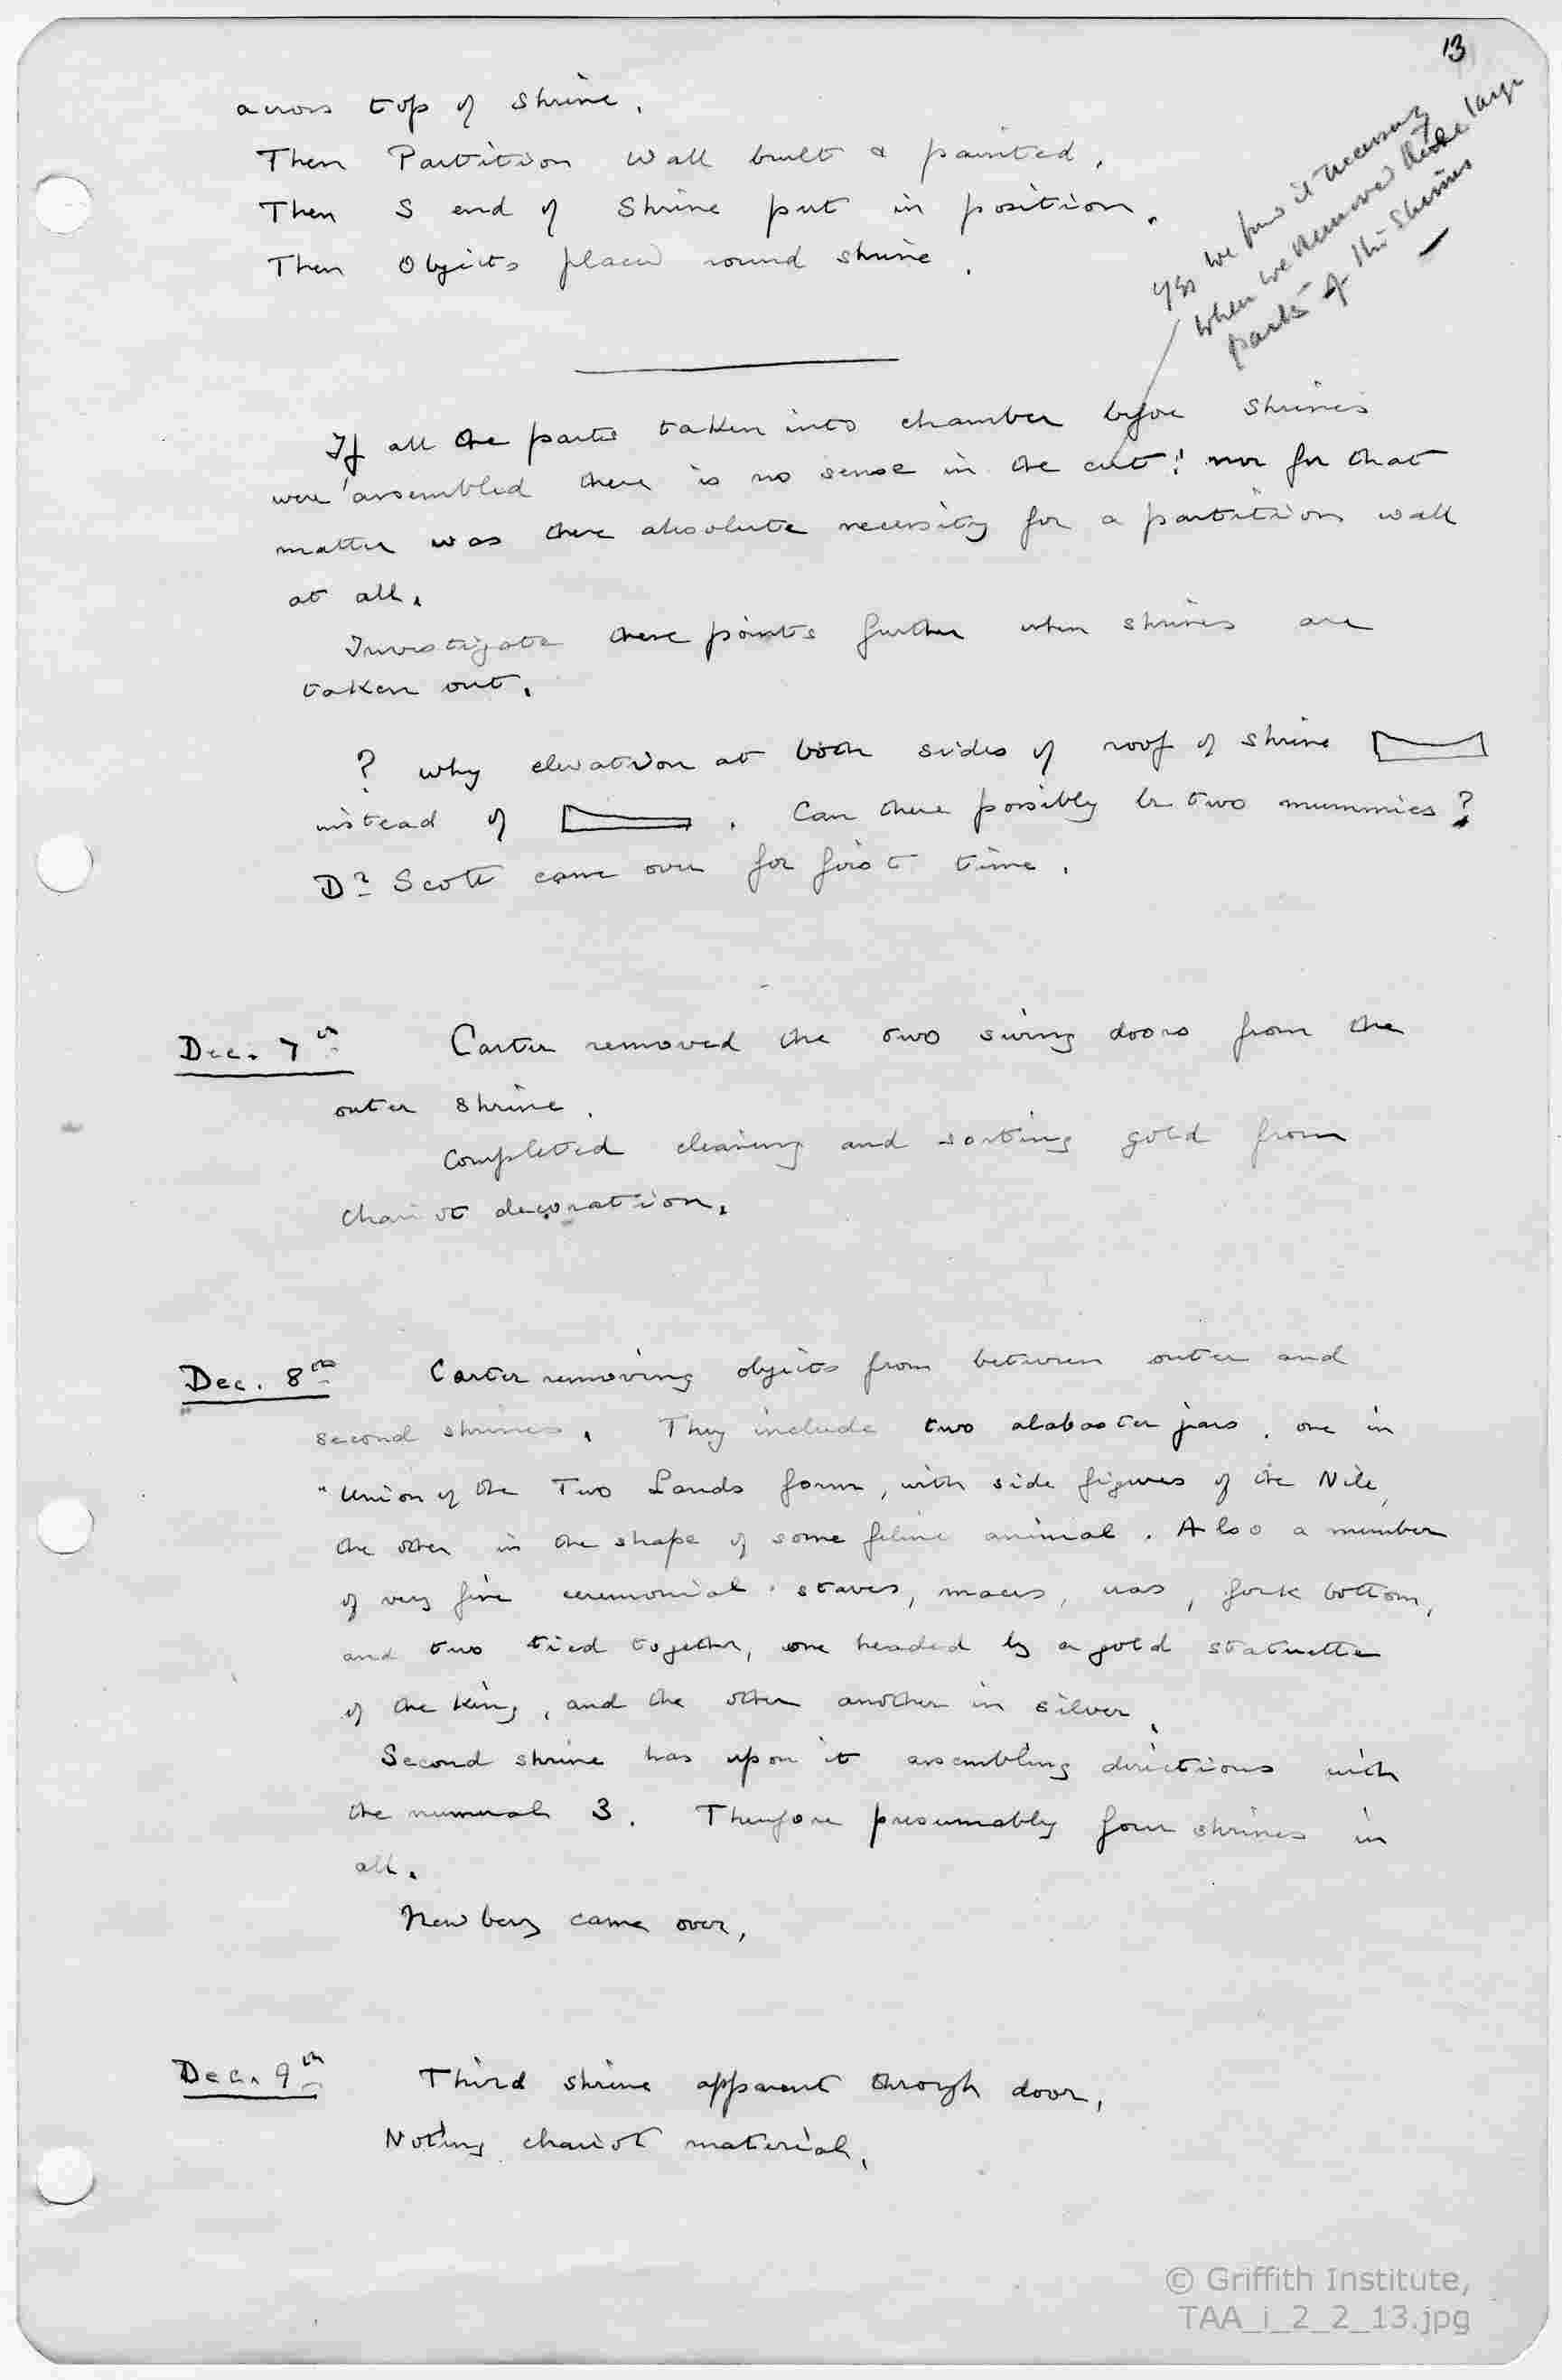 13
across top of shrine.
Then Partition Wall built & painted.
Then S end of Shrine put in position.
Then Objects placed round shrine.
Yes we find it necessary
when we removed these large
parts of the Shrines
If all the parts taken into chamber before shrines
were assembled there is no sense in the cut! nor for that
matter was there absolute necessity for a partition wall
at all.
Investigate these points further when shrines are
taken out.
? why elevation at both sides of roof of shrine
instead of . Can there possibly be two mummies?
Dr Scott came over for first time.
Dec. 7th Carter removed the two swing doors from the
outer shrine.
Completed cleaning and sorting gold from
chariot decoration.
Dec. 8th Carter removing objects from between outer and
second shrines. They include two alabaster jars, one in
"Union of the Two Lands form, with side figures of the Nile,
the other in the shape of some feline animal. Also a number
of very fine ceremonial staves, maces, uas, fork bottom,
and two tied together, one headed by a gold statuette
of the king, and the other another in silver.
Second shrine has upon it assembling directions with
the numeral 3. Therefore presumably four shrines in
all.
Newbery came over.
Dec. 9th Third shrine apparent through door.
Noting chariot material.
© Griffith Institute,
TAA_i_2_2_13.jpg